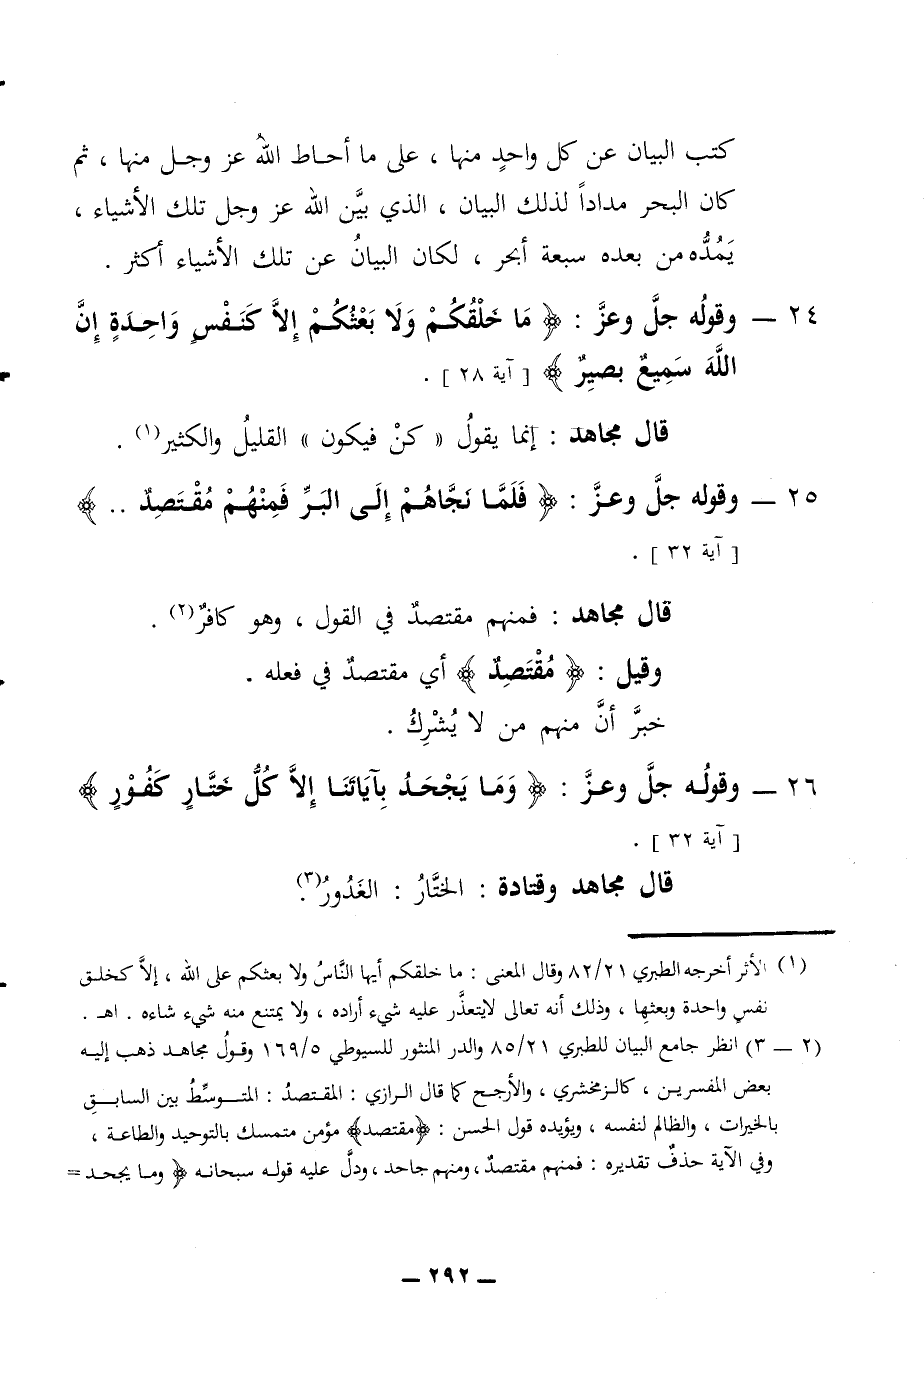 كتب البيان عن كل واحدٍ منها ، على ما أحاط اللهُ عز وجل منها ، ثم
كان البحر مداداً لذلك البيان ، الذي بيَّن الله عز وجل تلك الأشياء ،
يَمُدُّه من بعده سبعة أبحر ، لكان البيانُ عن تلك الأشياء أكثر .
٢٤ ــ وقولُه جلَّ وعزَّ : ﴿ مَا خَلْقُكُمْ وَلَا بَعْثُكُمْ إِلاَّ كَنَفْسٍ وَاحِدَةٍ إِنَّ
اللَّهَ سَمِيعٌ بصيِرٌ ﴾ [ آية ٢٨ ] .
قال مجاهد : إنما يقولُ « كنْ فيكون » القليلُ والكثير(١) .
٢٥ ــ وقوله جلَّ وعزَّ : ﴿ فَلَمَّا نَجَّاهُمْ إِلَى البَرِّ فَمِنْهُمْ مُقْتَصِدٌ .. ﴾
[ آية ٣٢ ] .
قال مجاهد : فمنهم مقتصدٌ في القول ، وهو كافرٌ(٢) .
وقيل : ﴿ مُقْتَصِدٌ ﴾ أي مقتصدٌ في فعله .
خبرَّ أنَّ منهم من لا يُشْرِكُ .
٢٦ ــ وقولُه جلَّ وعزَّ : ﴿ وَمَا يَجْحَدُ بِآيَاتَنَا إِلاَّ كُلُّ خَتَّارٍ كَفُوْرٍ ﴾
[ آية ٣٢ ] .
قال مجاهد وقتادة : الختَّارُ : الغَدُورُ(٣).
(١) الأثر أخرجه الطبري ٨٢/٢١ وقال المعنى : ما خلقكم أيها النَّاسُ ولا بعثكم على الله ، إلاَّ كخلق
نفسٍ واحدة وبعثها ، وذلك أنه تعالى لايتعذَّر عليه شيء أراده ، ولا يمتنع منه شيء شاءه . اهـ .
(٢ ــ ٣) انظر جامع البيان للطبري ٨٥/٢١ والدر المنثور للسيوطي ١٦٩/٥ وقولُ مجاهد ذهب إليه
بعض المفسرين ، كالزمخشري ، والأرجح كما قال الرازي : المقتصدُ : المتوسِّطُ بين السابقِ
بالخيرات ، والظالم لنفسه ، ويؤيده قول الحسن : ﴿مقتصد﴾ مؤمن متمسك بالتوحيد والطاعة ،
وفي الآية حذفٌ تقديره : فمنهم مقتصدٌ ، ومنهم جاحد ، ودلَّ عليه قوله سبحانه ﴿ وما يجحد =
ــ ٢٩٢ ــ